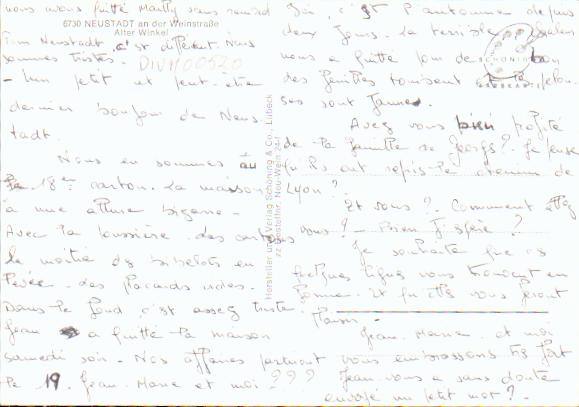 nous avons quitté Manthy sans regret
6730 NEUSTADT an der Weinstraße
Alter Winkel
Pour Neustadt, c'est différent. Nous
sommes tristes.
DIVM00520
- Un petit et peut-être
dernier bonjour de Neus-
tadt.
Nous en sommes au
18ème carton. La maison
a une allure bizarre -
Avec la poussière des cartons
la moitié des bibelots en
des placards vides.
Dans le fond c'est assez triste.
Jean a quitté la maison
samedi soir - Nos affaires partiront
le 19. Jean-Marie et moi ???
Hersteller und Verlag Schöning & Co., Lübeck
SCHÖNING
c'est l'automne depuis
deux jours. La terrible chaleur
nous a quitté pour de bon
des feuilles jaunissent et les pelou-
ses sont jaunes.
Avez vous bien profité
de la famille de Georges? Je pense
qu'ils ont repris le chemin de
Lyon?
Et vous? Comment allez
vous? - Bien j'espère?
Je souhaite que ces
quelques lignes vous trouvent en
forme. Et qu'elles vous feront
plaisir -
Jean-Marie et moi
vous embrassons très fort
Jean vous a sans doute
envoyé un petit mot?